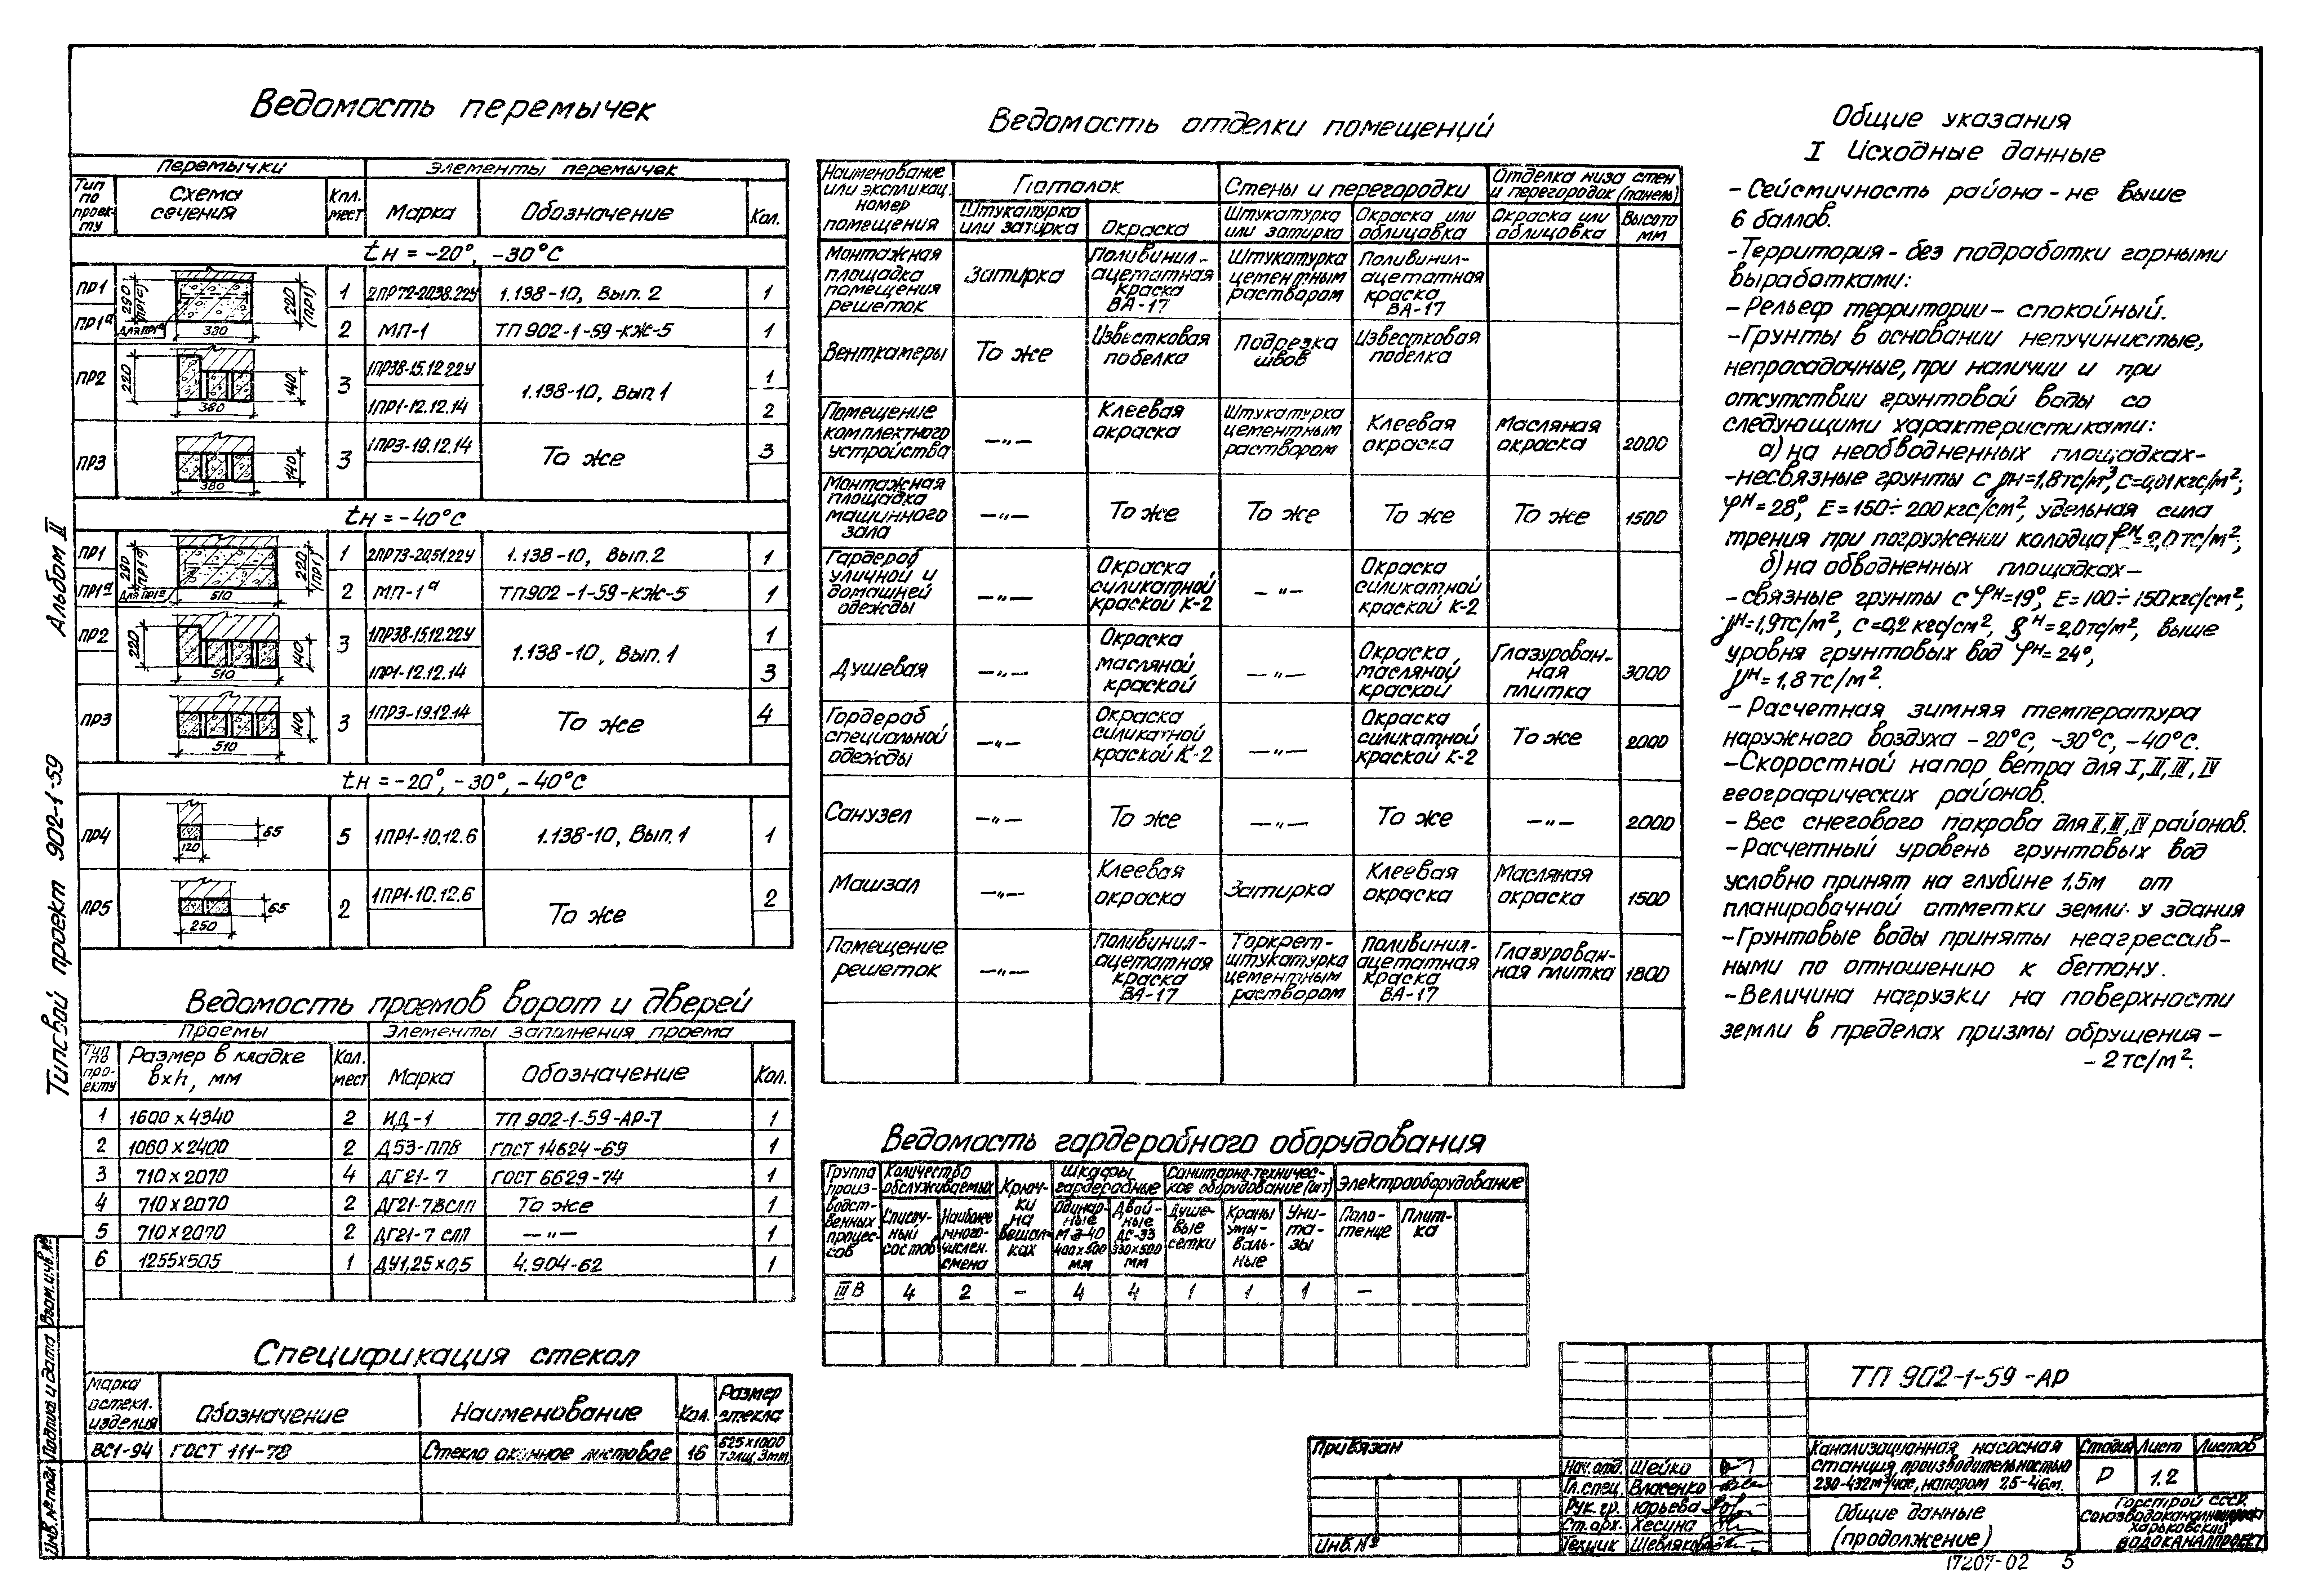 Альбом II
Типовой проект 902-1-59
Взам.инв.№
Подпись и дата
Инв.№ подл
Ведомость перемычек
Перемычки
Элементы перемычек
Тип по проекту
Схема сечения
Кол. мест
Марка
Обозначение
Кол.
tн = -20°, -30°С
ПР1 290 (ПР1ª) 220 (ПР1) 1 2ПР72-20.38.22У 1.138-10, Вып. 2 1
ПР1ª Для ПР1ª 380 2 МП-1 ТП 902-1-59-КЖ-5 1
ПР2 220 140 380 3 1ПР38-15.12.22У 1.138-10, Вып 1 1
1ПР1-12.12.14 2
ПР3 140 380 3 1ПР3-19.12.14 То же 3
tн = -40°С
ПР1 290 (ПР1ª) 220 (ПР1) 1 2ПР73-20.51.22У 1.138-10, Вып.2 1
ПР1ª Для ПР1ª 510 2 МП-1ª ТП902-1-59-КЖ-5 1
ПР2 220 140 510 3 1ПР38-15.12.22У 1.138-10, Вып.1 1
1ПР1-12.12.14 3
ПР3 140 510 3 1ПР3-19.12.14 То же 4
tн = -20°, -30°, -40°С
ПР4 65 120 5 1ПР1-10.12.6 1.138-10, Вып.1 1
ПР5 65 250 2 1ПР1-10.12.6 То же 2
Ведомость проемов ворот и дверей
Проемы
Элементы заполнения проема
Тип по проекту
Размер в кладке
вхh, мм
Кол. мест
Марка
Обозначение
Кол.
1 1600 х 4340 2 ИД-1 ТП 902-1-59-АР-7 1
2 1060 х 2400 2 Д53-ППВ ГОСТ 14624-69 1
3 710 х 2070 4 ДГ21-7 ГОСТ 6629-74 1
4 710 х 2070 2 ДГ21-7ВСЛП То же 1
5 710 х 2070 2 ДГ21-7 СЛП —"— 1
6 1255х505 1 ДУ1,25х0,5 4.904-62 1
Спецификация стекол
Марка остекл. изделия
Обозначение
Наименование
Кол.
Размер стекла
ВС1-94 ГОСТ 111-78 Стекло оконное листовое 16 625х1000 толщ.3мм
Ведомость отделки помещений
Наименование или экспликац. номер помещения
Потолок
Стены и перегородки
Отделка низа стен и перегородок (панель)
Штукатурка или затирка
Окраска
Штукатурка или затирка
Окраска или облицовка
Окраска или облицовка
Высота мм
Монтажная площадка помещения решеток Затирка Поливинил-ацетатная краска ВА-17 Штукатурка цементным раствором Поливинил-ацетатная краска ВА-17
Венткамеры То же Известковая побелка Подрезка швов Известковая побелка
Помещение комплектного устройства —"— Клеевая окраска Штукатурка цементным раствором Клеевая окраска Масляная окраска 2000
Монтажная площадка машинного зала —"— То же То же То же То же 1500
Гардероб уличной и домашней одежды —"— Окраска силикатной краской К-2 —"— Окраска силикатной краской К-2
Душевая —"— Окраска масляной краской —"— Окраска масляной краской Глазурован-ная плитка 3000
Гардероб специальной одежды —"— Окраска силикатной краской К-2 —"— Окраска силикатной краской К-2 То же 2000
Санузел —"— То же —"— То же —"— 2000
Машзал —"— Клеевая окраска Затирка Клеевая окраска Масляная окраска 1500
Помещение решеток —"— Поливинил-ацетатная краска ВА-17 Торкрет-штукатурка цементным раствором Поливинил-ацетатная краска ВА-17 Глазурован-ная плитка 1800
Ведомость гардеробного оборудования
Группа произ-водст-венных процес-сов
Количество обслуживаемых
Списоч-ный состав
Наиболее много-числен. смена
Крюч-ки на вешал-ках
Шкафы гардеробные
Одинар-ные М д-40 400х500 мм
Двой-ные ДС-33 330х500 мм
Санитарно-техничес-кое оборудование (шт)
Душе-вые сетки
Краны умы-валь-ные
Уни-та-зы
Электрооборудование
Поло-тенце
Плит-ка
III В 4 2 – 4 4 1 1 1 –
Общие указания
I Исходные данные
- Сейсмичность района - не выше
6 баллов.
- Территория - без подработки горными
выработками:
- Рельеф территории - спокойный.
- Грунты в основании непучинистые,
непросадочные, при наличии и при
отсутствии грунтовой воды со
следующими характеристиками:
а) на необводненных площадках-
-несвязные грунты с γн=1,8тс/м³, с=0,01кгс/м²;
φн=28°, Е=150÷200 кгс/см², удельная сила
трения при погружении колодца fн=2,0тс/м²;
б) на обводненных площадках-
- связные грунты с φн=19°, Е=100÷150кгс/см²,
γн=1,9тс/м², с=0,2 кгс/см², fн=2,0тс/м², выше
уровня грунтовых вод φн=24°,
γн=1,8тс/м².
- Расчетная зимняя температура
наружного воздуха -20°С, -30°С, -40°С.
-Скоростной напор ветра для I, II, III, IV
географических районов.
- Вес снегового покрова для II, III, IV районов.
-Расчетный уровень грунтовых вод
условно принят на глубине 1,5м от
планировочной отметки земли у здания
-Грунтовые воды приняты неагрессив-
ными по отношению к бетону.
- Величина нагрузки на поверхности
земли в пределах призмы обрушения -
- 2тс/м².
Привязан
Инв.№
Нач.отд. Шейко
Гл.спец. Власенко
Рук. гр. Юрьева
Ст.арх. Хесина
Техник
ТП 902-1-59-АР
Канализационная насосная
станция производительностью
230-432м³/час, напором 7,5-46м.
Стадия Лист Листов
Р 1.2
Общие данные
(продолжение)
Госстрой СССР
Союзводоканалпроект
Харьковский
Водоканалпроект
17207-02 5